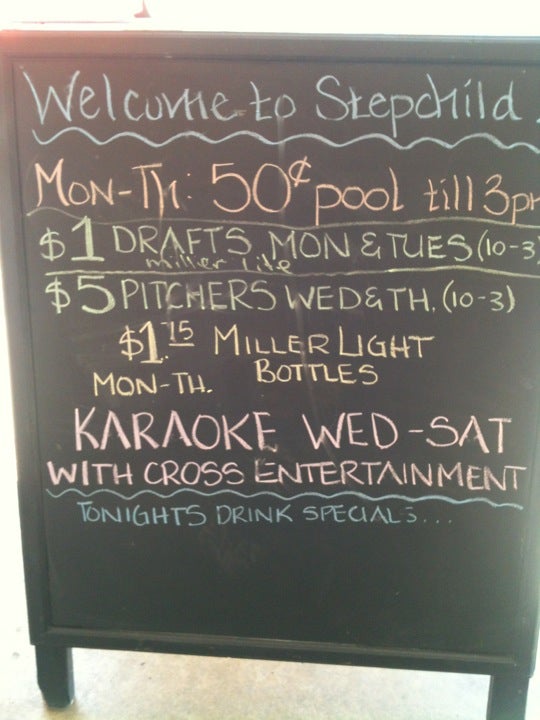 Welcome to Stepchild
Mon-Th: 50¢ pool till 3pm
$1 DRAFTS MON & TUES (10-3)
miller lite
$5 PITCHERS WED & TH. (10-3)
$1.75 MILLER LIGHT
MON-TH. BOTTLES
KARAOKE WED-SAT
WITH CROSS ENTERTAINMENT
TONIGHTS DRINK SPECIALS...